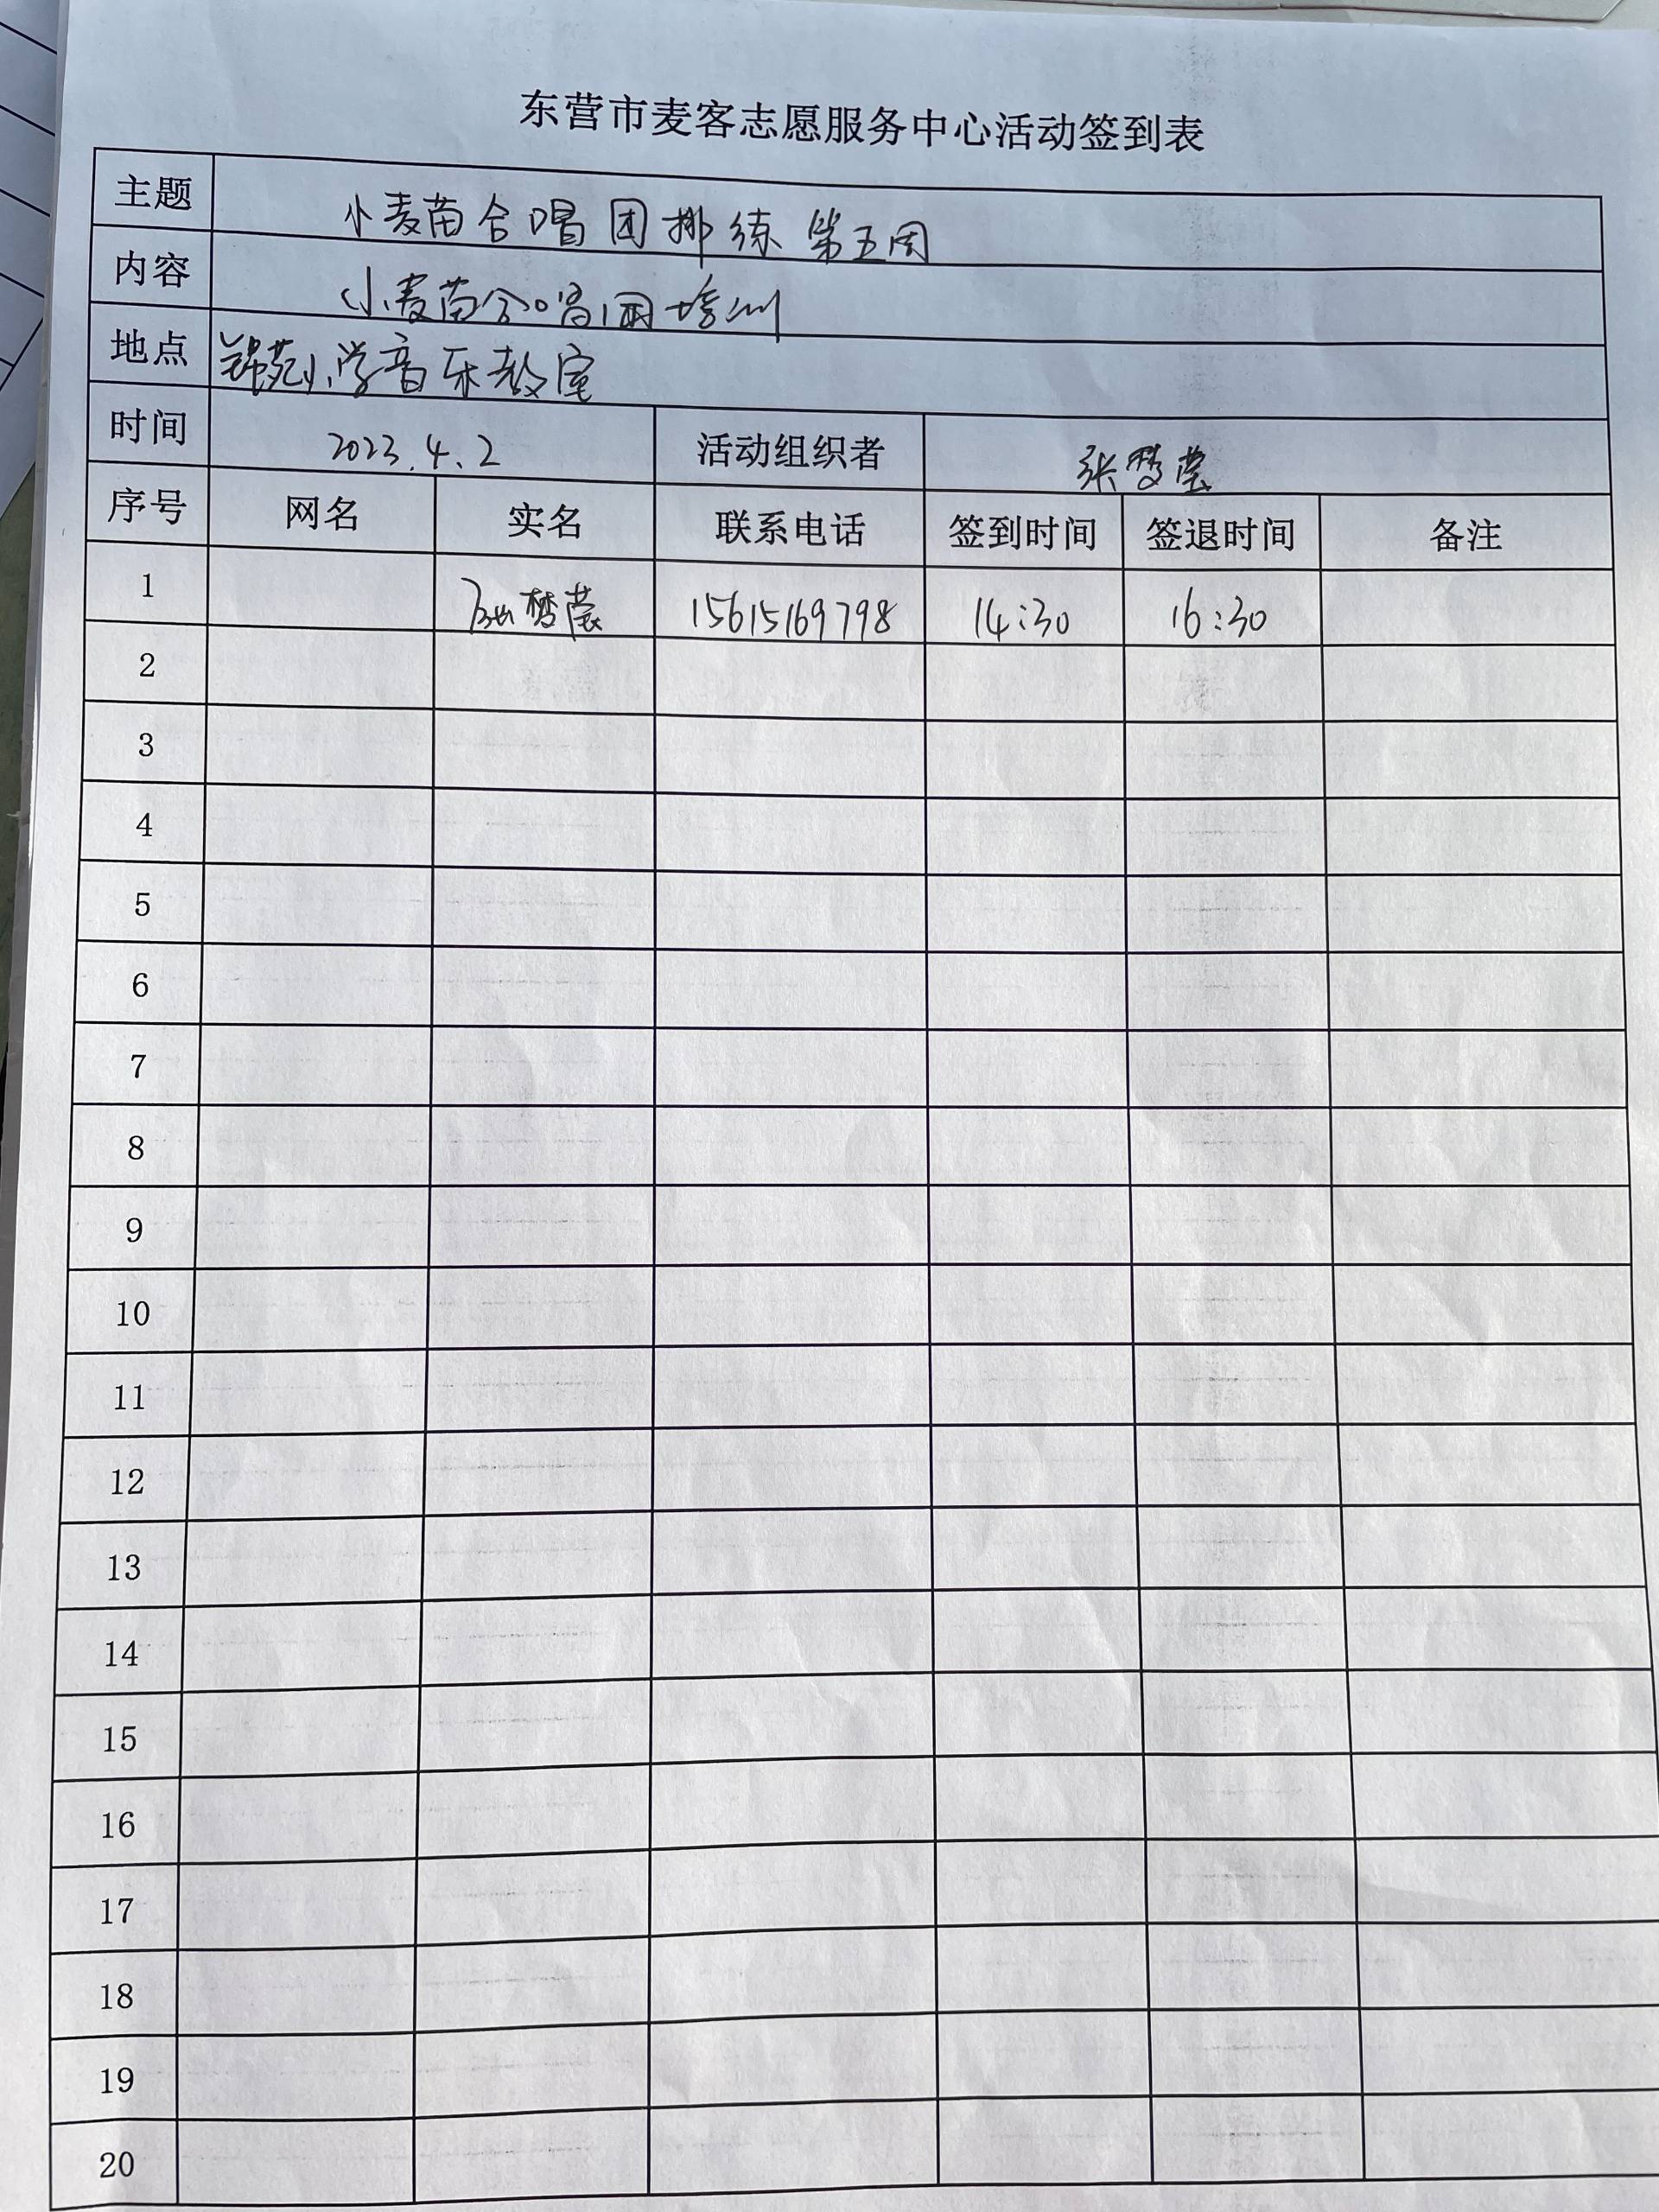 东营市麦客志愿服务中心活动签到表
主题 小麦苗合唱团排练 第五周
内容 小麦苗合唱团培训
地点 锦苑小学音乐教室
时间 2023.4.2 活动组织者 张梦莹
序号 网名 实名 联系电话 签到时间 签退时间 备注
1 梦莹 15615169798 14:30 16:30
2
3
4
5
6
7
8
9
10
11
12
13
14
15
16
17
18
19
20